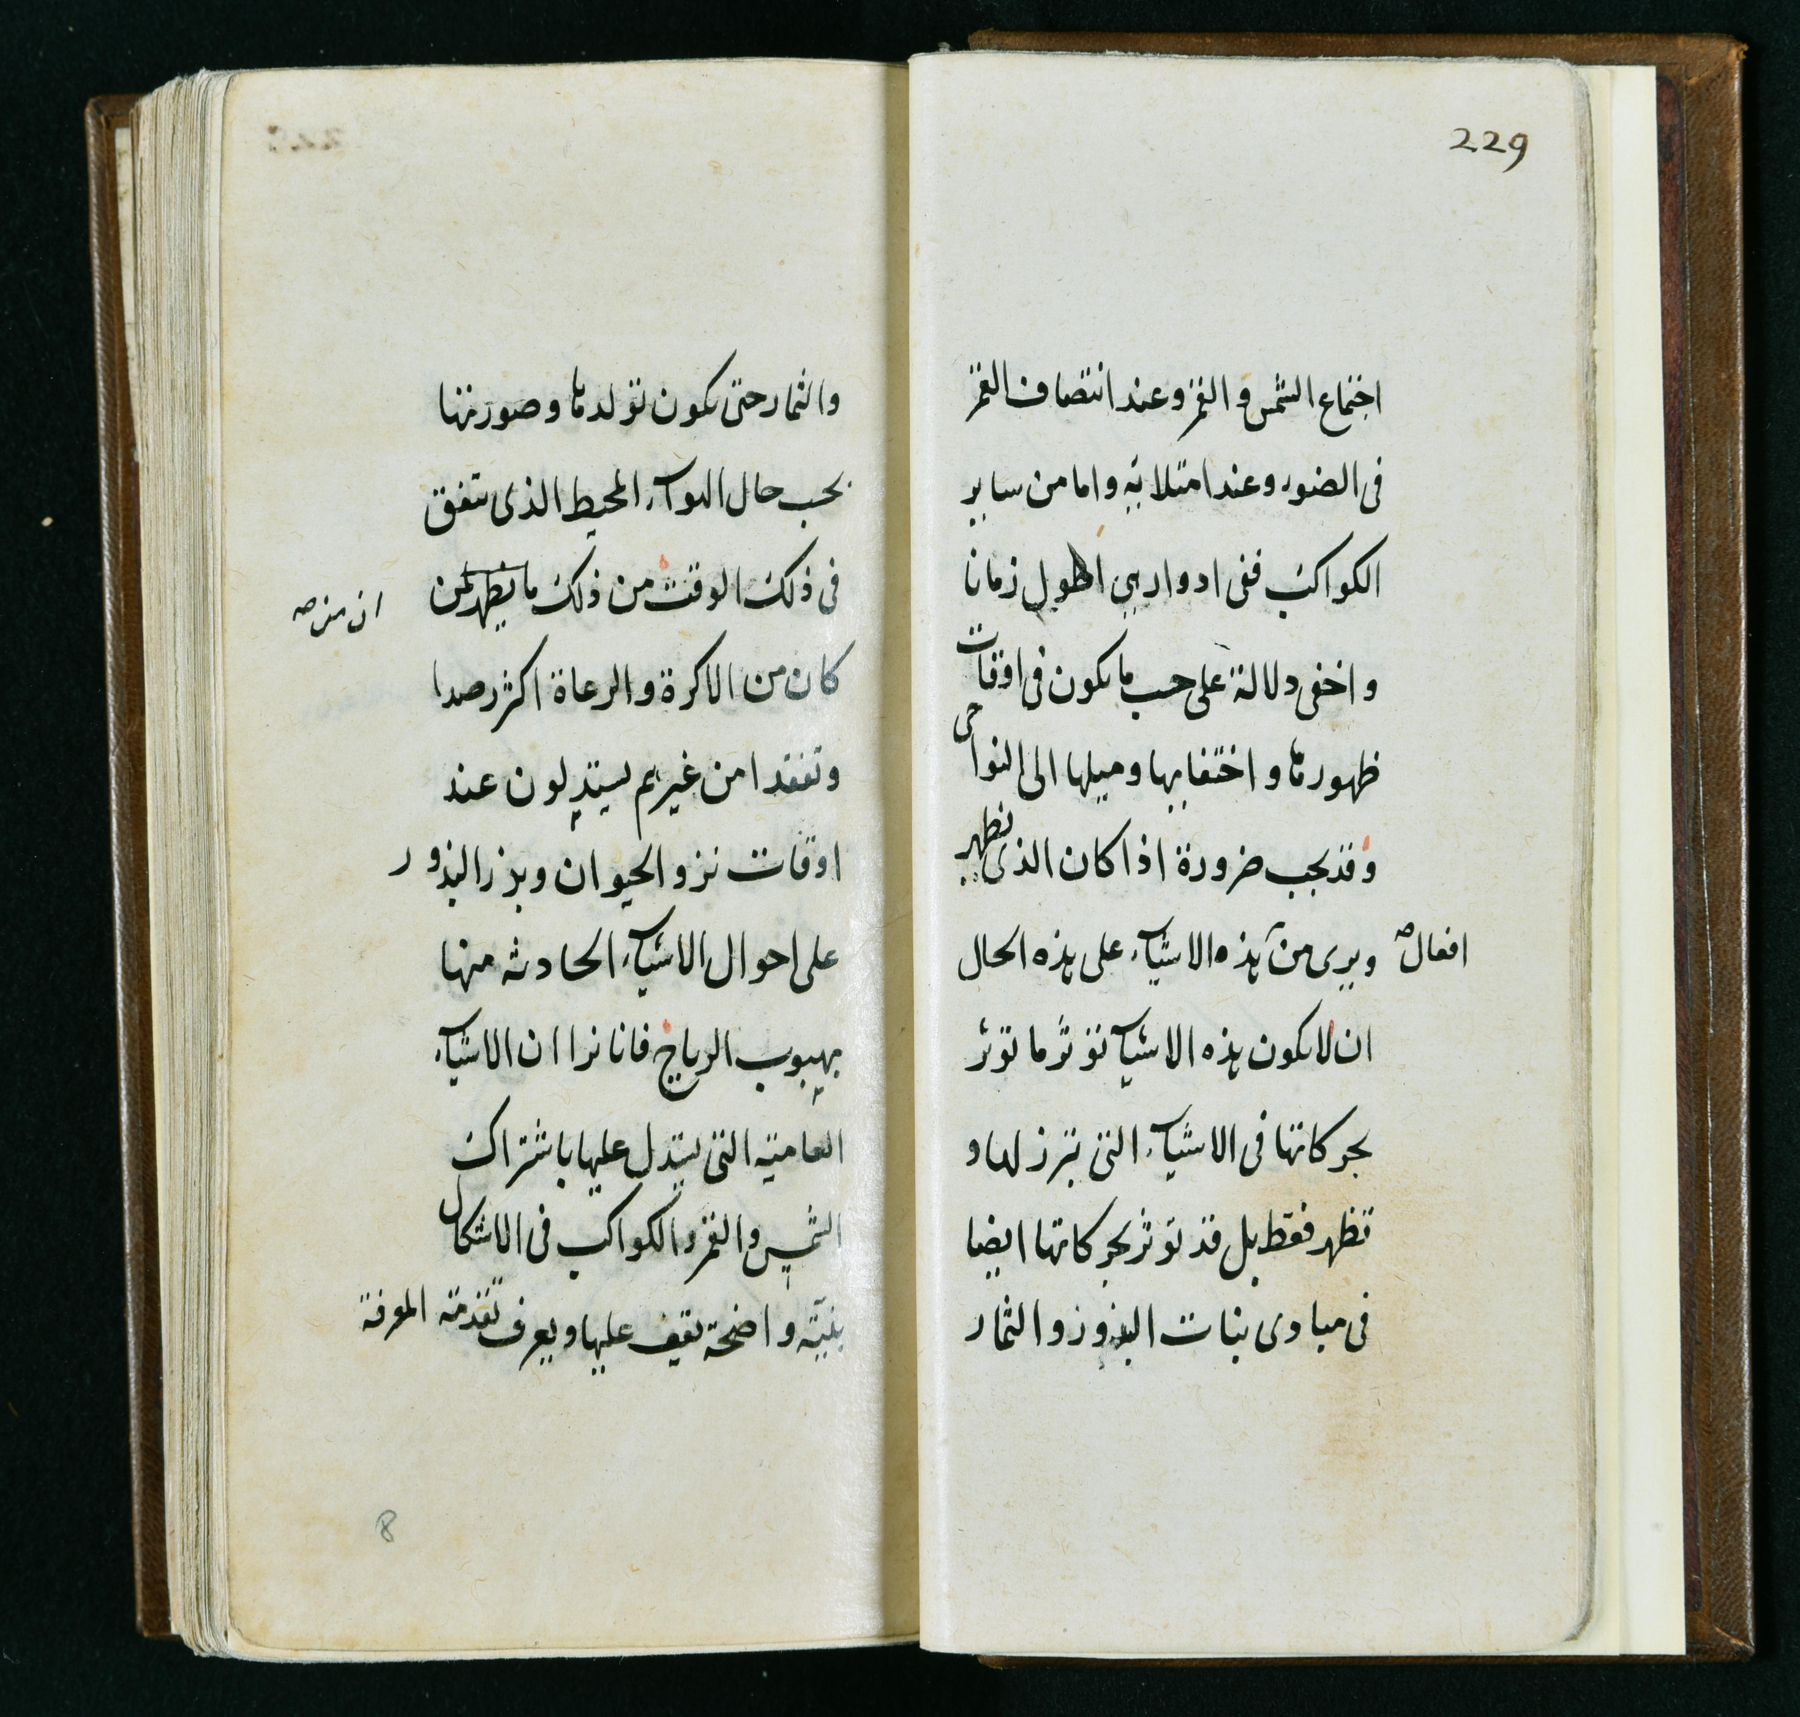 229
اجتماع الشمس و القمر و عند انتصاف القمر
فى الضوء و عند امتلائه و اما من ساير
الكواكب ففى ادوار هى اطول زمانا
و اخفى دلالة على حسب ما يكون فى اوقات
ظهورها و اختفايها و ميلها الى النواحى
و قد يجب ضرورة اذا كان الذى يظهر
و يرى من هذه الاشياء على هذه الحال
افعال صح
ان لا يكون هذه الاشياء تؤثر ما تؤثر
بحركاتها فى الاشياء التى تبرز لها و
تظهر فقط بل قد تؤثر بحركاتها ايضا
فى مبادى نبات البذور و الثمار
والثمار حتى يكون تولدها و صورتها
بحسب حال الهواء المحيط الذى يتفق
فى ذلك الوقت من ذلك ما يظهر لمن
ان من صح
كان من الاكرة و الرعاة اكثر رصدا
و تفقدا من غيرهم يستدلون عند
اوقات نزو الحيوان و بذر البذور
على احوال الاشياء الحادثه منها
بهبوب الرياح فانا نرا ان الاشياء
العامية التى يستدل عليها باشتراك
الشمس و القمر و الكواكب فى الاشكال
بينة واضحة يقف عليها و يعرف تقدمة المعرفة
8